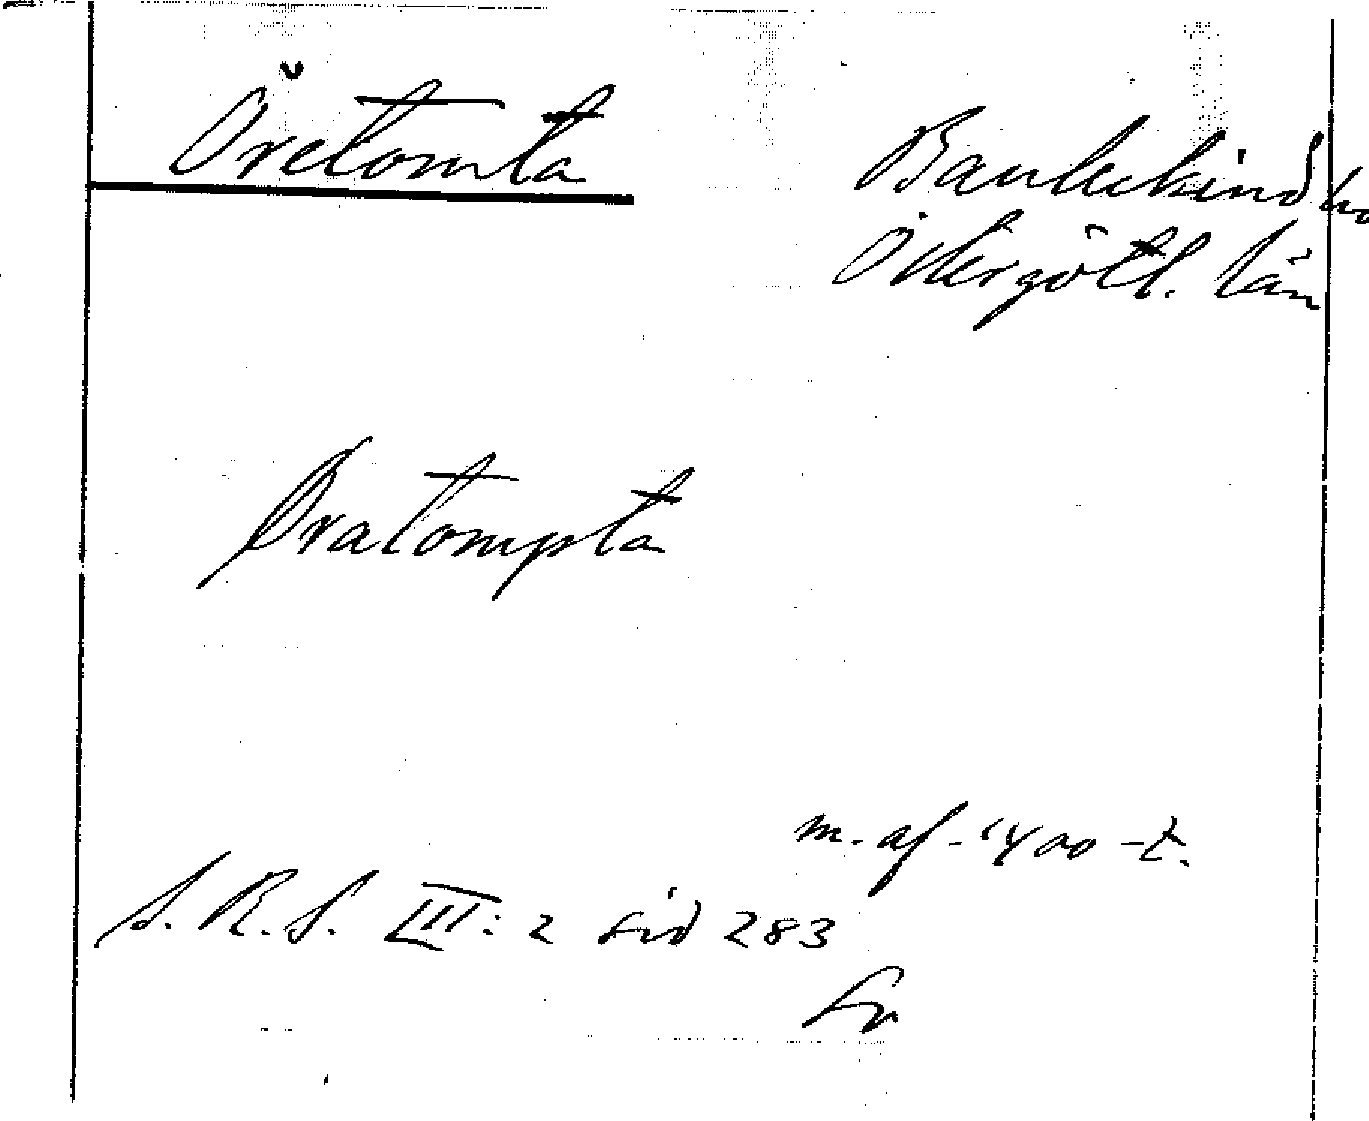 Öretomta
Bankekind hd
Östergötl. län
Øratompta
m. af. 1400-t.
S. R. S. III: 2 sid 283